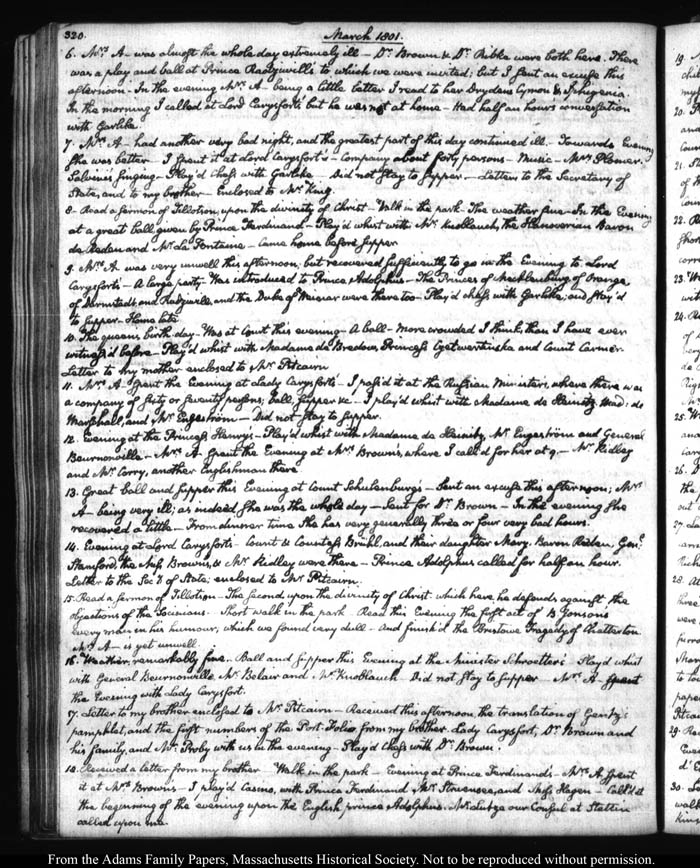 320.
March 1801.
6. Mrs A- was almost the whole day extremely ill - Dr Brown & Dr Ribke were both here. There
was a play and ball at Prince Radziwill's to which we were invited; but I sent an excuse this
afternoon - In the evening Mrs A- being a little better I read to her Drydens Cymon & Iphigenia.
In the morning I called at Lord Carysfort's but he was not at home - Had half an hours conversation
with Garlike.
7. Mrs A- had another very bad night, and the greatest part of this day continued ill. - Towards Evening
she was better - I spent it at Lord Carysfort's - Company about forty persons - Music -
Salvini's singing - Play'd Chess with Garlike - Did not stay to supper. - Letters to the Secretary of
State, and to my brother - Enclosed to Mr King.
8. Read a sermon of Tillotson, upon the divinity of Christ - Walk in the park - The weather fine - In the Evening
at a great ball given by Prince Ferdinand - Play'd whist with Mr Knoblauch, the Hanoverian Baron
de Reden and Mr de Fontaine - Came home before supper
9. Mrs A. was very unwell this afternoon, but recovered sufficiently to go in the Evening to Lord
Carysfort's - A large party - Was introduced to Prince Adolphus - The Princes of Mecklenburg, of Orange
of Darmstadt, and Radziwill, and the Duke of Weimar were there too - Play'd chess with Garlike, and stay'd
to supper - Home late
10. The queens birth day - Was at Court this evening - A ball - More crowded I think, than I have ever
witness'd before - Play'd whist with Madame de Bredow, Princess Czetwertinska and Count Carmer.
Letter to my mother enclosed to Mr Pitcairn
11. Mrs A. spent the Evening at Lady Carysfort's - I pass'd it at the Russian Ministers, where there was
a company of sixty or seventy persons; ball, supper &c - I play'd whist with Madame de Heinitz, Mad: de
Marshall, and Mr Engeström - Did not stay to supper.
12. Evening at the Princess Henry's - Play'd whist with Madame de Heinitz, Mr Engeström and General
Beurnonville - Mrs A- spent the Evening at Mrs Brown's, where I call'd for her at 9. - Mr Ridley
and Mr Corry, another Englishman there
13. Great ball and supper this Evening at Count Schulenburg's - Sent an excuse this afternoon; Mrs
A- being very ill; as indeed she was the whole day - Sent for Dr Brown - In the evening she
recovered a little - From dinner time she has very generally three or four very bad hours.
14. Evening at Lord Carysfort's - Count & Countess Brühl, and their daughter Mary. Baron Reden, Genl
Stamford, the Miss Browns, & Mr Ridley were there - Prince Adolphus called for half an hour.
Letter to the Secy of State; enclosed to Mr Pitcairn.
15. Read a sermon of Tillotson - The second upon the divinity of Christ which here he defends against the
objections of the Socinians - Short walk in the park - Read this Evening the first act of B. Jonson's
Every man in his humour, which we found very dull - And finish'd the Bristowe Tragedy of Chatterton
Mrs A- is yet unwell.
16. Weather remarkably fine. Ball and supper this Evening at the Minister Schroetter's - Play'd whist
with General Beurnonville, Mr Belair and Mr Knoblauch. Did not stay to supper - Mrs A. spent
the Evening with Lady Carysfort.
17. Letter to my brother enclosed to Mr Pitcairn - Received this afternoon, the translation of Gentz's
pamphlet, and the first numbers of the Port-Folio from my brother. Lady Carysfort, Dr Brown and
his family, and Mr Proby with us in the evening - Play'd Chess with Dr Brown.
18. Received a letter from my brother Walk in the park - Evening at Prince Ferdinand's - Mrs A. spent
it at Mrs Browns - I play'd Casino, with Prince Ferdinand, Mr Struensee, and Miss Hagen - Call'd at
the beginning of the evening upon the English prince Adolphus. Mr Lutze our Consul at Stettin
called upon me
From the Adams Family Papers, Massachusetts Historical Society. Not to be reproduced without permission.